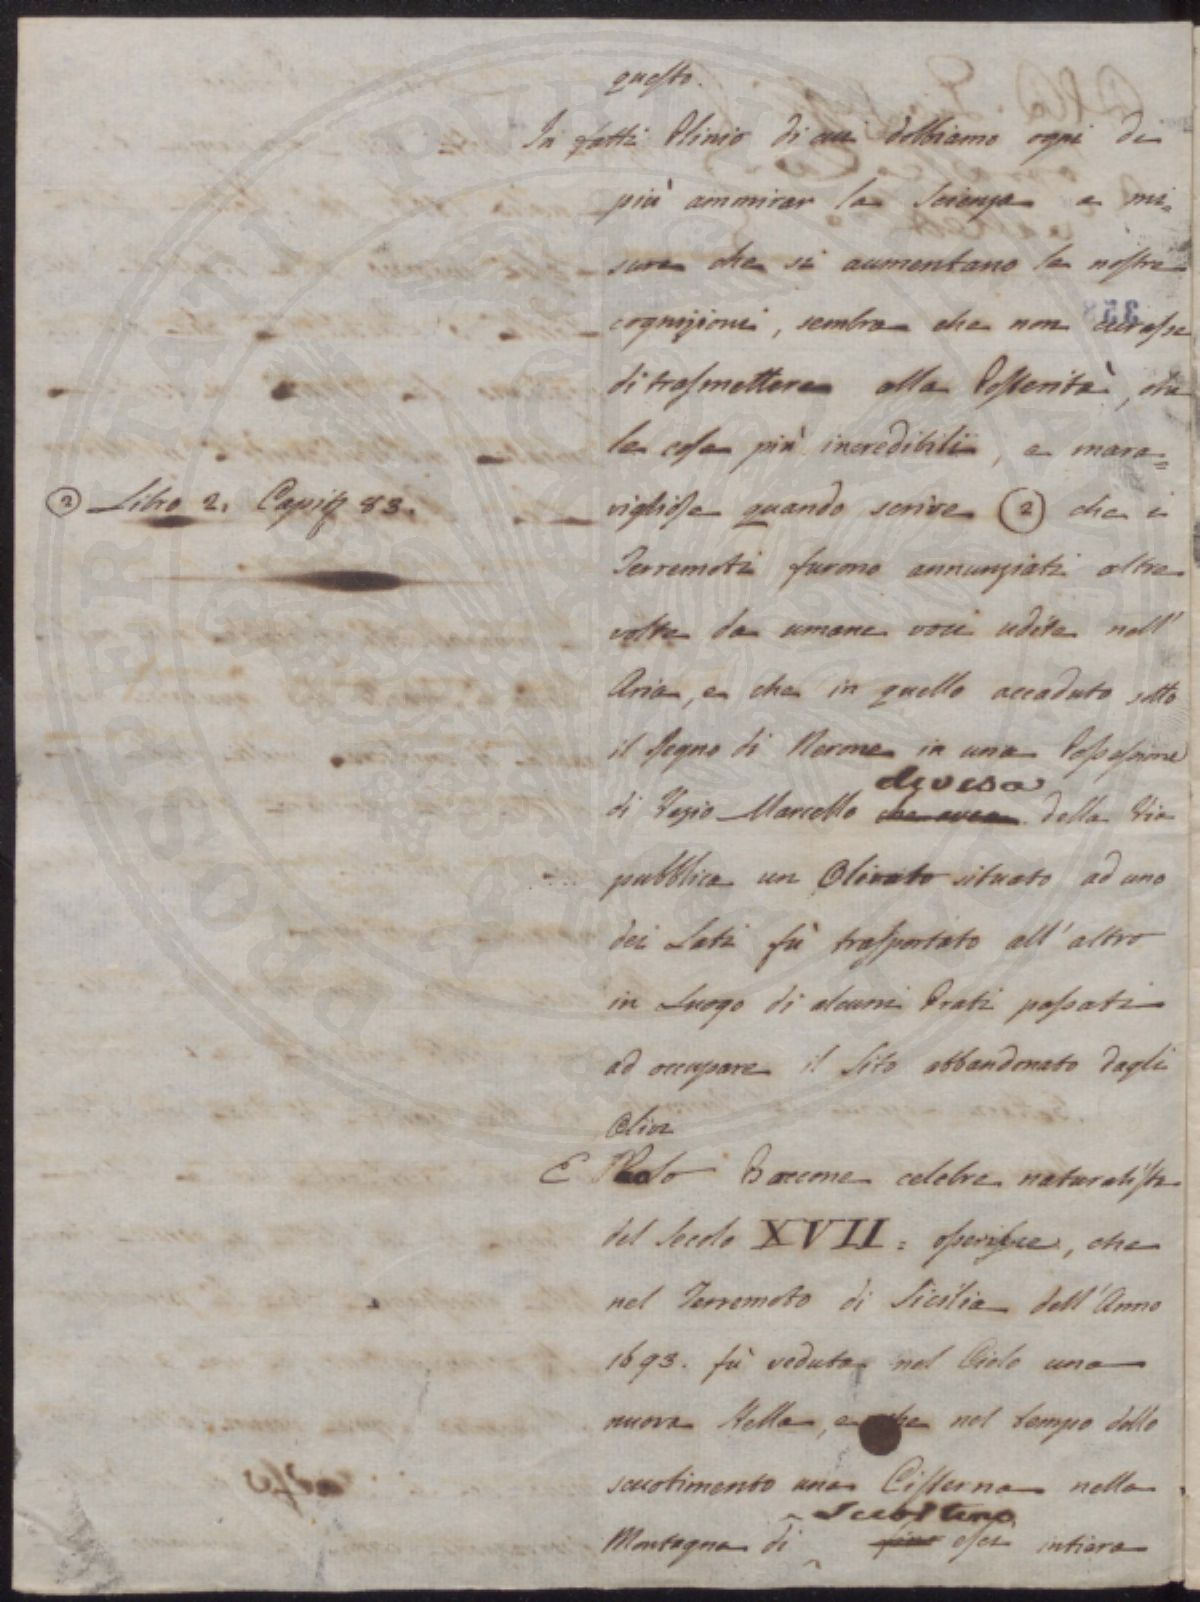 questo.
In fatti Plinio di cui dobbiamo ogni di
più ammirar la Scienza a mi=
sura che si aumentano le nostre
cognizioni, sembra che non
di trasmettere alla Posterità, che
le cose più incredibili, e mara=
vigliose quando scrive (2) che i
(2) Libro 2. Capit 83.
Terremoti furono annunziati altre
volte da umane voci udite nell'
Aria, e che in quello accaduto sotto
il Regno di Nerone in una Possessione
divisa
di Vezio Marcello che avea della Via
pubblica un Oliveto situato ad uno
dei Lati fù trasportato all'altro
in Luogo di alcuni Prati passati
ad occupare il Sito abbandonato dagli
Olivi
E Paolo Boccone celebre naturalista
del Secolo XVII: , che
nel Terremoto di Sicilia dell'Anno
1693. fù veduta nel Cielo una
nuova Stella, e che nel tempo dello
scuotimento una Cisterna nella
Scuoltino
Montagna di esci intiera